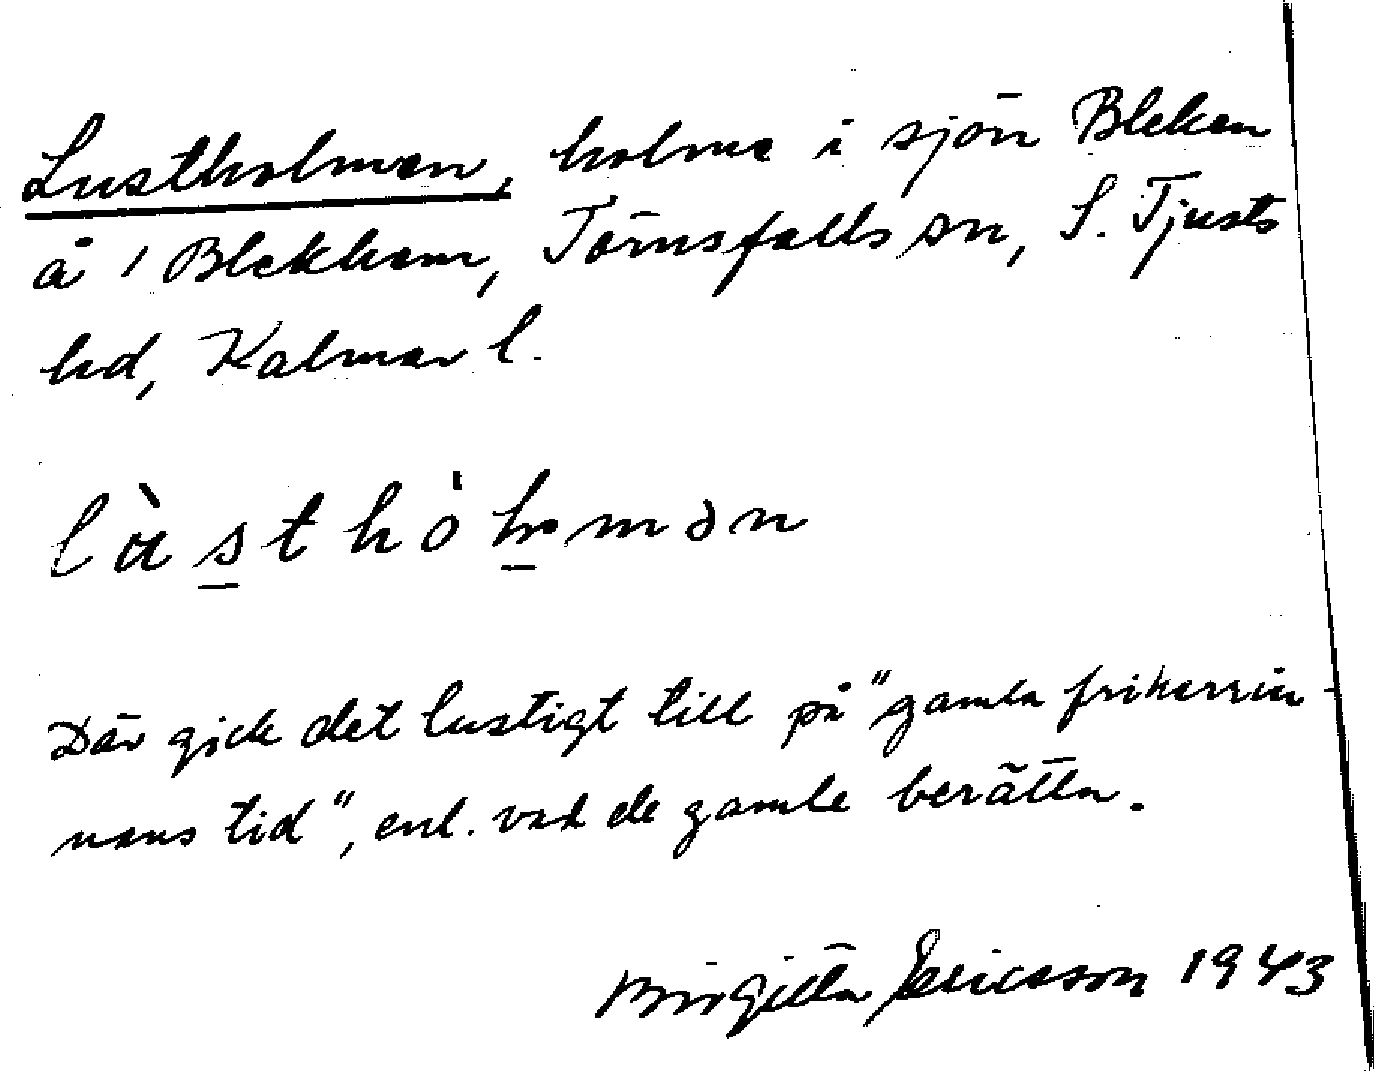 Lustholmen, holme i sjön Bleken
å 1 Blekhem, Törnsfalls sn, S. Tjusts
hd, Kalmar l.
Där gick det lustigt till på "gamla friherrin-
nans tid", enl. vad de gamle berätta.
Birgitta Ericsson 1943